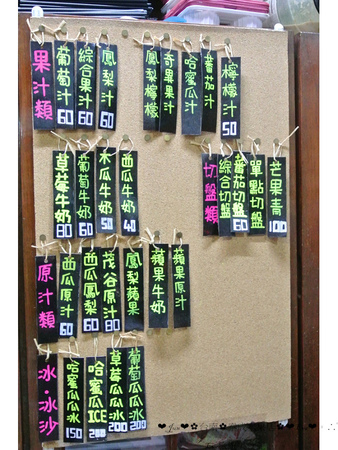 果汁類
葡萄汁 60
綜合果汁 60
鳳梨汁 60
鳳梨檸檬
奇異果汁
哈蜜瓜汁
蕃茄汁
檸檬汁 50
草莓牛奶 80
葡萄牛奶 60
木瓜牛奶 50
西瓜牛奶 40
切盤類
綜合切盤
蕃茄切盤 60
單點切盤
芒果青 100
原汁類
西瓜原汁 60
西瓜鳳梨 60
茂谷原汁 80
鳳梨蘋果
蘋果牛奶
蘋果原汁
冰·冰沙
哈蜜瓜瓜冰 150
哈蜜瓜ICE 200
草莓瓜瓜冰 200
葡萄瓜瓜冰 200